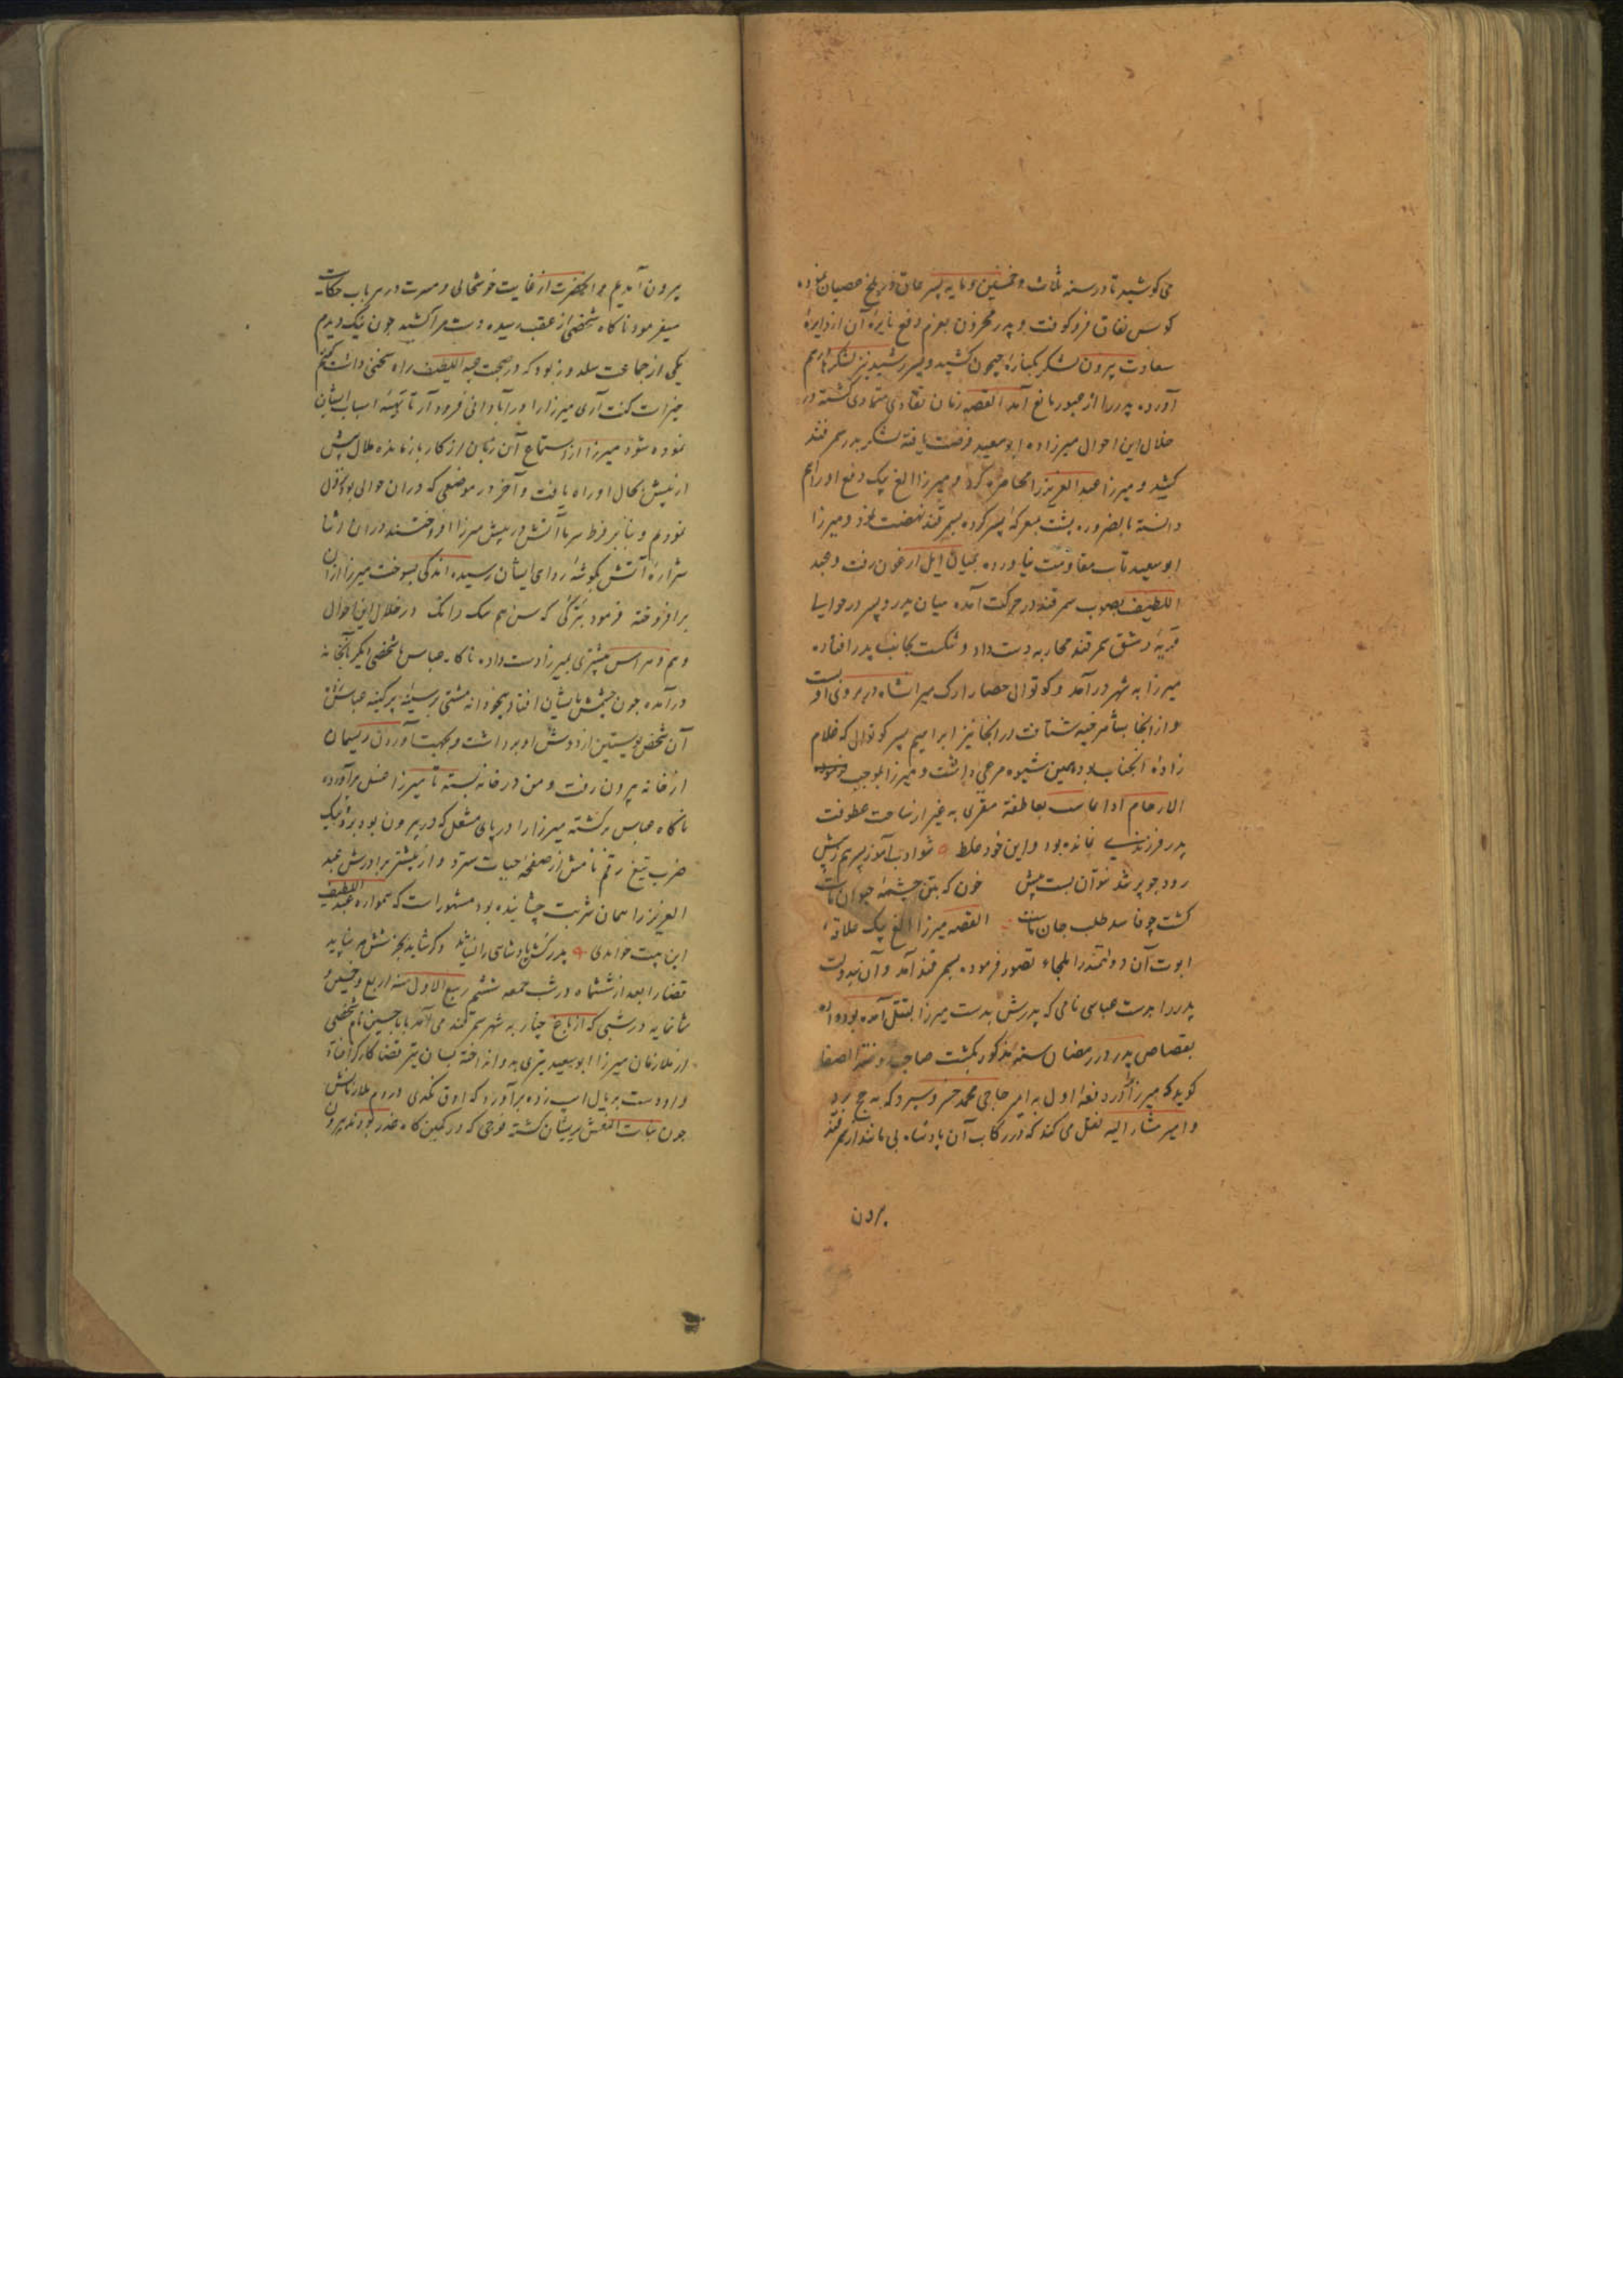 می کوشید تا در سنه ثلاث و خمسین و مایه پسر عاق در بلخ عصیان نموده
کوس نفاق فرو کوفت و پدر محزون بعزم دفع نایره آن از دایره
سعادت بیرون لشکر بکناره جیحون کشید و پسر رشید نیز لشکر فراهم
آورده پدر را از عبور مانع آمد القصه زمان تفادی متمادی کشته در
خلال این احوال میرزاده ابو سعید فرصت یافته لشکر بدر سمرقند
کشید و میرزا عبد العزیز را محاصره کرد و میرزا الغ بیک دفع او را اهم
دانسته بالضروره پشت بمعرکه پسر کرده بسمرقند نهضت نمود و میرزا
ابو سعید تاب مقاومت نیاورده بمیان ایل ارغون رفت و عبد
اللطیف بصوب سمرقند در حرکت آمده میان پدر و پسر در حوالی
قریه دمشق سمرقند محاربه دست داد و شکست بجانب پدر افتاده
میرزا به شهر در آمد و کوتوال حصار ارک میرانشاه در بروی او بست
و از انجا بشاهرخیه شتافت در انجا نیز ابراهیم پسر کوتوال که غلام
زاده آنجناب بود همین شیوه مرعی داشت و میرزا بموجب
الارحام بعاطفه به غیر از ساحت عطوفت
پدر فرزندیی نمانده بود و این خود غلط شو ادب آموز پسر هم ز پیش
رود چو پر شد نتوان بست پیش خون که بتن چشمه حیوان ماست
کشت چو فاسد طلب جان ماست القصه میرزا الغ بیک علاقه
ابوت آن دولتمند را ملجاء تصور فرموده بسمرقند آمد و آن بیدولت
پدر را بدست عباسی نامی که پدرش بدست میرزا بقتل آمده بود داده
بقصاص پدر در رمضان سنه مذکور بکشت صاحب روضة الصفا
کوید که میرزا را در دفعه اول به امیر حاجی محمد خسرو سپرد که به حج برد
و امیر مشار الیه نقل می کند که در رکاب آن پادشاه بی مانند از سمرقند
برون
بیرون آمدیم و آنحضرت از غایت خوشحالی و مسرت در هر باب حکایت
میفرمود ناکاه شخصی از عقب رسیده دست مرا کشید چون نیک دیدم
یکی از جماعت سلدوز بود که در صحبت عبد اللطیف راه سخن داشت کفتم
خیر است کفت آری میرزا را در آبادانی فرود آر تا تهیه اسباب ایشان
نموده شود میرزا از استماع آن زبان از کار باز مانده ملال بیش
از پیش بحال او راه یافت و آخر در موضعی که در ان حوالی بود نزول
نمودیم و بنابر فرط سرما آتش در پیش میرزا افروختند در ان اثنا
شراره آتش بکوشه ردای ایشان رسیده اندکی بسوخت میرزا از ان
برافروخته فرمود بترکی که سن هم بیلدینک در خلال این احوال
وهم و هراس بیشتری بمیرزا دست داده ناکاه عباس با شخصی دیکر بآنخانه
درآمده چون چشمش بایشان افتاد بیخودانه مشتی بر سینه پر کینه عباس زد
آن شخص پوستین از دوش او برداشت و بجهت آوردن ریسمان
از خانه بیرون رفت و من در خانه بسته تا میرزا غسل برآورده
ناکاه عباس برکشته میرزا را در پای مشعل که در بیرون بود برده بیک
ضرب تیغ رقم نامش از صفحه حیات سترد و از پیشتر برادرش عبد
العزیز را همان شربت چشانیده بود مشهور است که همواره عبد اللطیف
این بیت خواندی پدر کش پادشاهی را نشاید و کر شاید بجز شش مه نپاید
قضا را بعد از ششماه در شب جمعه ششم ربیع الاول سنه اربع و خمسین و
ثمانمایه در شبی که از باغ چنار به شهر سمرقند می آمد بابا حسین نام شخصی
از ملازمان میرزا ابو سعید تیری بدو انداخته بسان تیر قضا کارکر افتاد
و او دست بر یال اسپ زده برآورد که اوق تکدی مردم ملازمانش
چون بنات النعش پریشان کشته فوجی که در کمین کاه غدر بودند بیرون